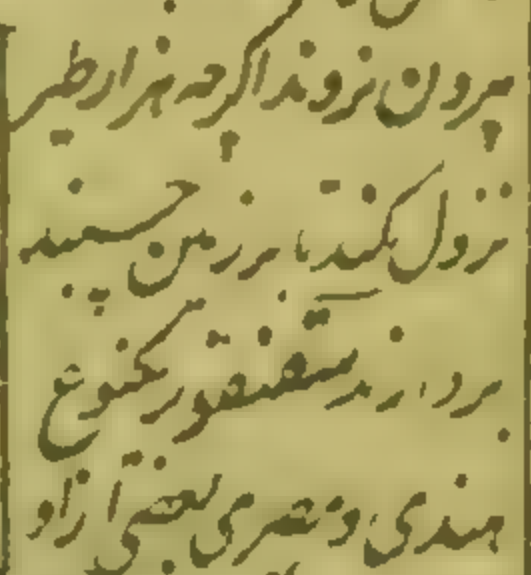 بیرون نروند اکرچه هزار طیر
نزول کند بر زمین چسپند
بردارند سقنقور یکنوع
هندی و مصری بعضی از او